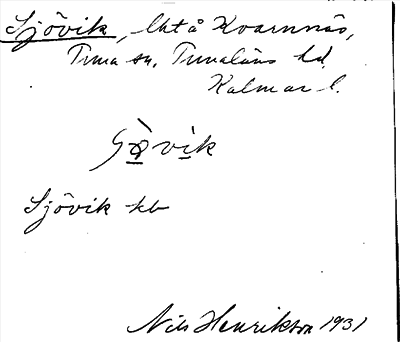 Sjövik, lht å Kvarnnäs,
Tuna sn. Tunaläns hd.
Kalmar l.
Sjövik kb
Nils Henrikson 1931